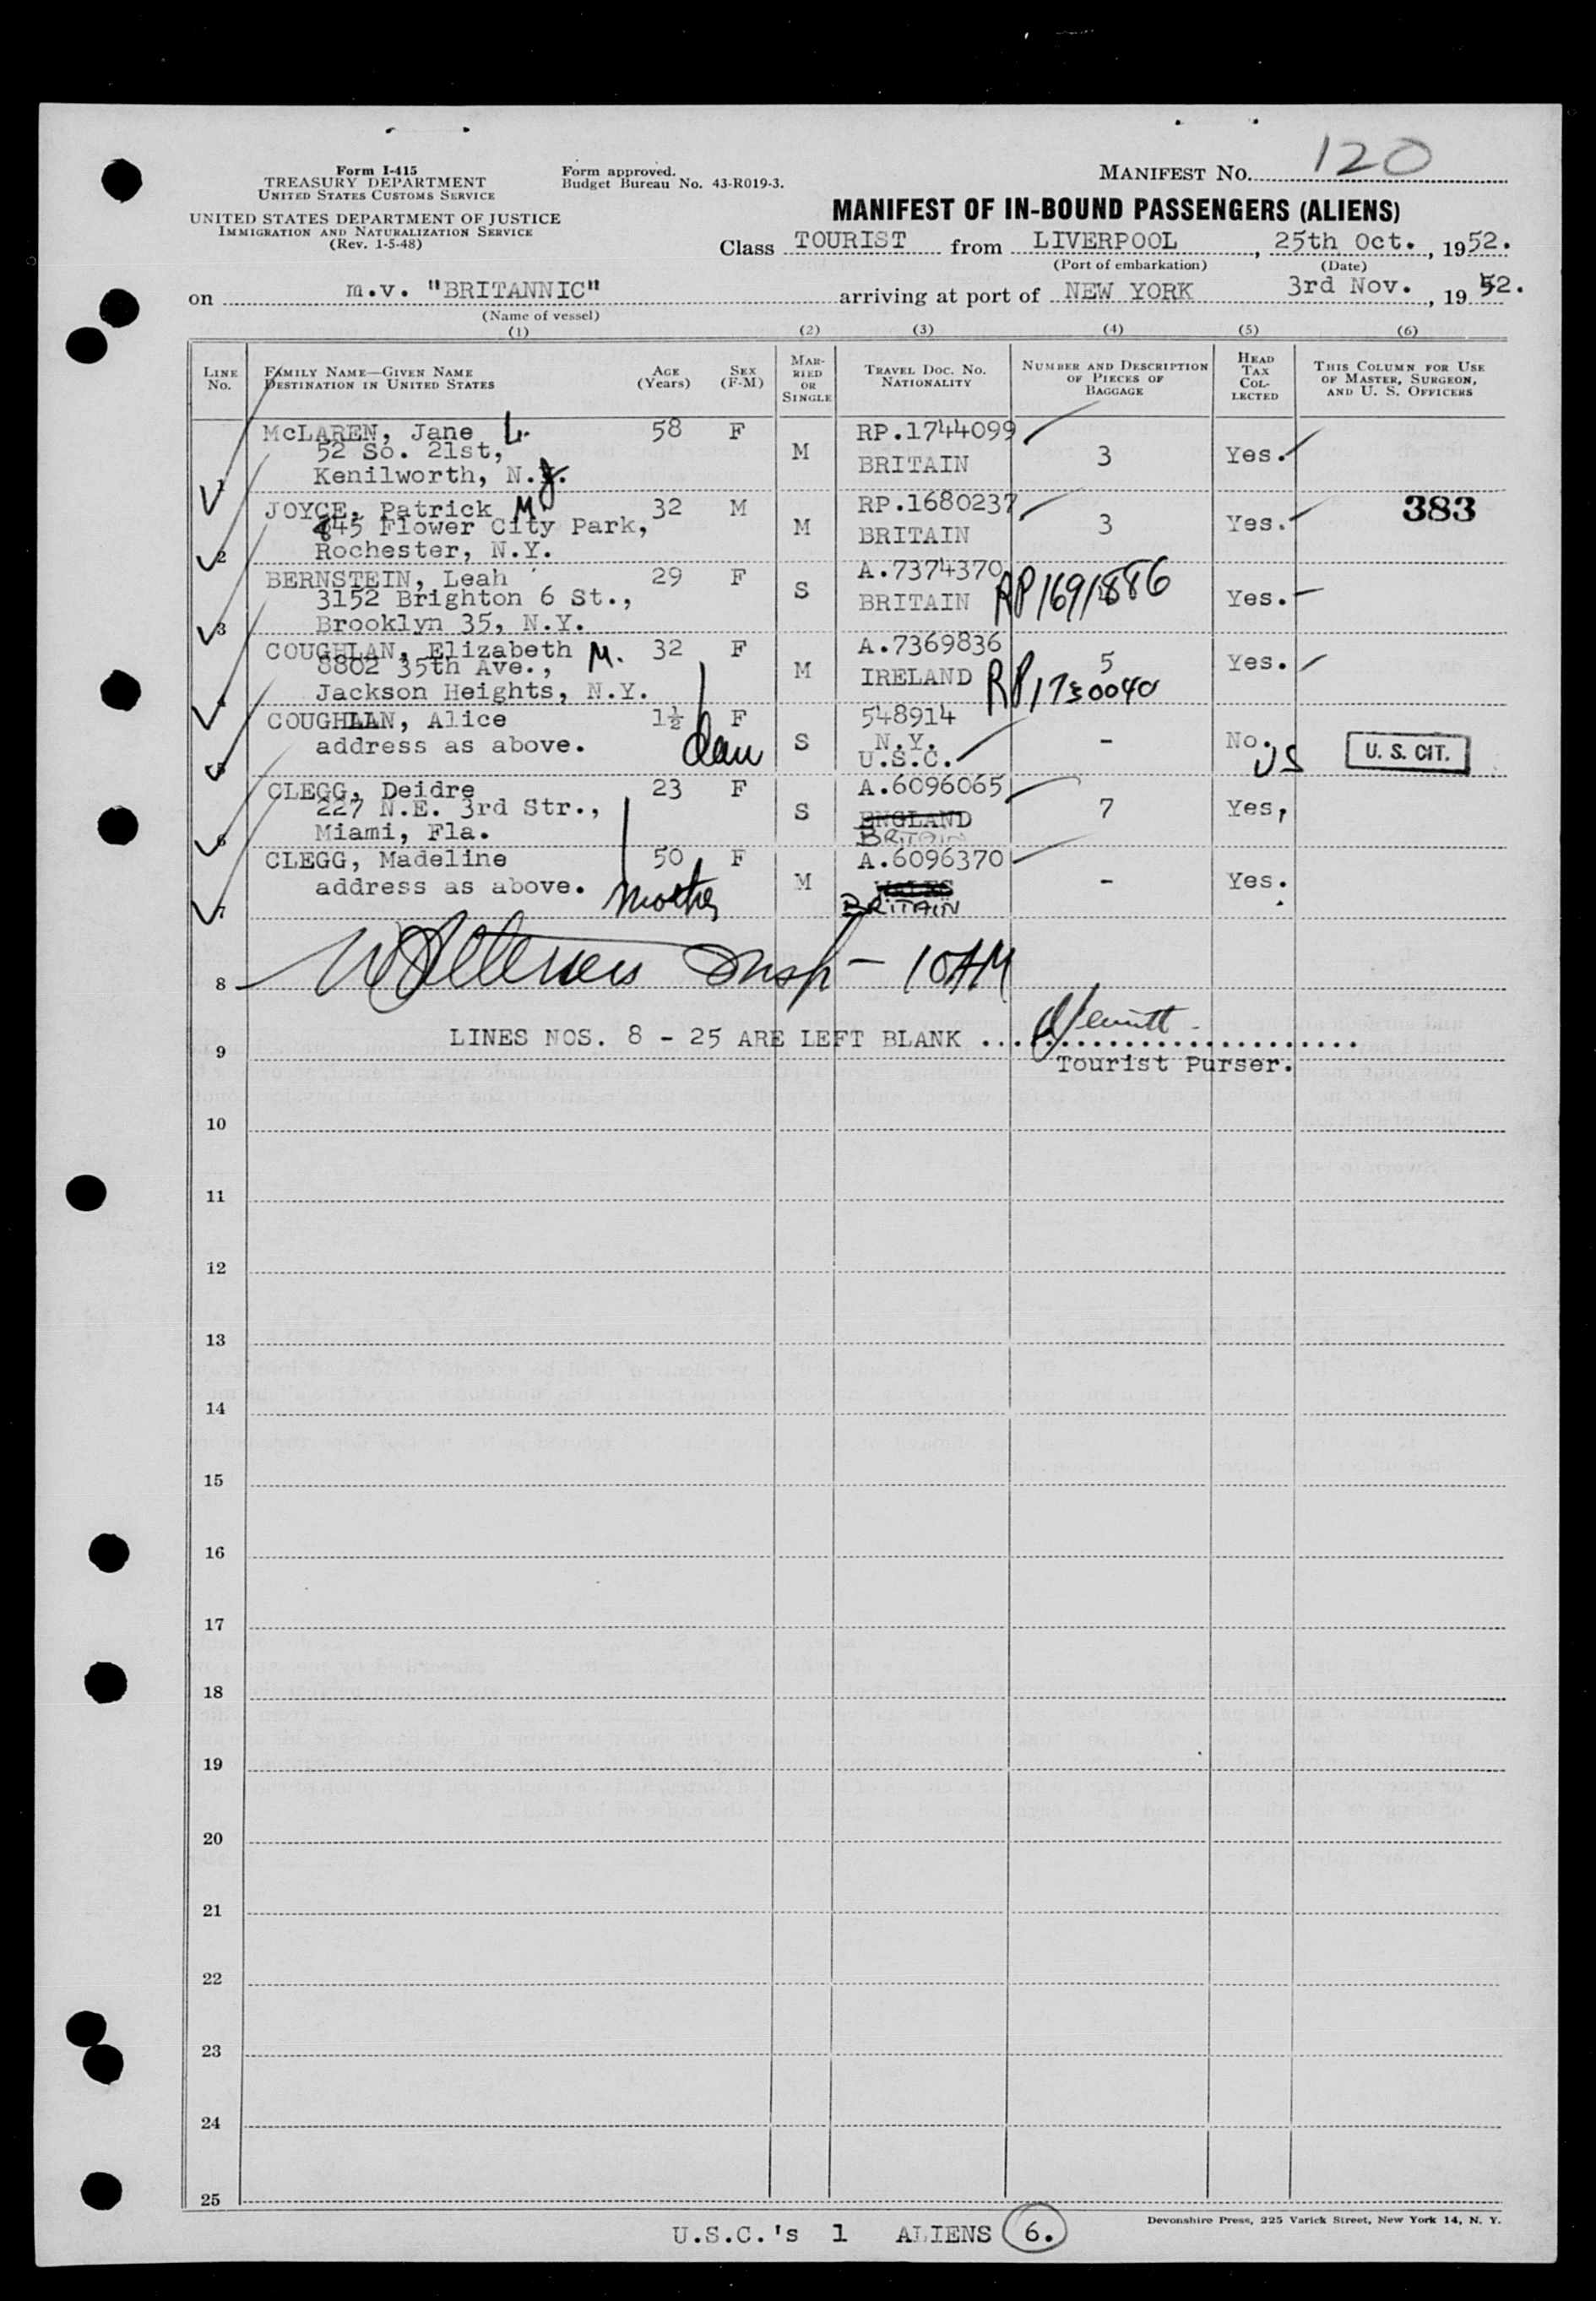 Form I-415
TREASURY DEPARTMENT
UNITED STATES CUSTOMS SERVICE
UNITED STATES DEPARTMENT OF JUSTICE
IMMIGRATION AND NATURALIZATION SERVICE
(Rev. 1-5-48)
Form approved.
Budget Bureau No. 43-R019-3.
MANIFEST NO. 120
MANIFEST OF IN-BOUND PASSENGERS (ALIENS)
Class TOURIST from LIVERPOOL, 25th Oct., 1952.
(Port of embarkation) (Date)
on m.v. "BRITANNIC" arriving at port of NEW YORK 3rd Nov., 1952.
(Name of vessel)
(1) (2) (3) (4) (5) (6)
LINE No.
FAMILY NAME—GIVEN NAME
DESTINATION IN UNITED STATES
AGE (Years)
SEX (F-M)
MARRIED OR SINGLE
TRAVEL DOC. NO. NATIONALITY
NUMBER AND DESCRIPTION OF PIECES OF BAGGAGE
HEAD TAX COLLECTED
THIS COLUMN FOR USE OF MASTER, SURGEON, AND U. S. OFFICERS
McLAREN, Jane L. 58 F M RP.1744099 3 Yes.
52 So. 21st, BRITAIN
1 Kenilworth, N.J.
JOYCE, Patrick M 32 M M RP.1680237 3 Yes. 383
845 Flower City Park, BRITAIN
2 Rochester, N.Y.
BERNSTEIN, Leah 29 F S A.7374370 Yes.
3152 Brighton 6 St., BRITAIN RP1691886
3 Brooklyn 35, N.Y.
COUGHLAN, Elizabeth M. 32 F M A.7369836 5 Yes.
8802 35th Ave., IRELAND RP1730040
4 Jackson Heights, N.Y.
COUGHLAN, Alice 1½ F S 548914 - No. US U. S. CIT.
address as above. dau N.Y.
5 U.S.C.
CLEGG, Deidre 23 F S A.6096065 7 Yes,
227 N.E. 3rd Str., ENGLAND
6 Miami, Fla. BRITAIN
CLEGG, Madeline 50 F M A.6096370 - Yes.
address as above. mother WALES
7 BRITAIN
8 Insp - 10AM
9 LINES NOS. 8 - 25 ARE LEFT BLANK
Tourist Purser.
10
11
12
13
14
15
16
17
18
19
20
21
22
23
24
25
Devonshire Press, 225 Varick Street, New York 14, N. Y.
U.S.C.'s 1 ALIENS 6.